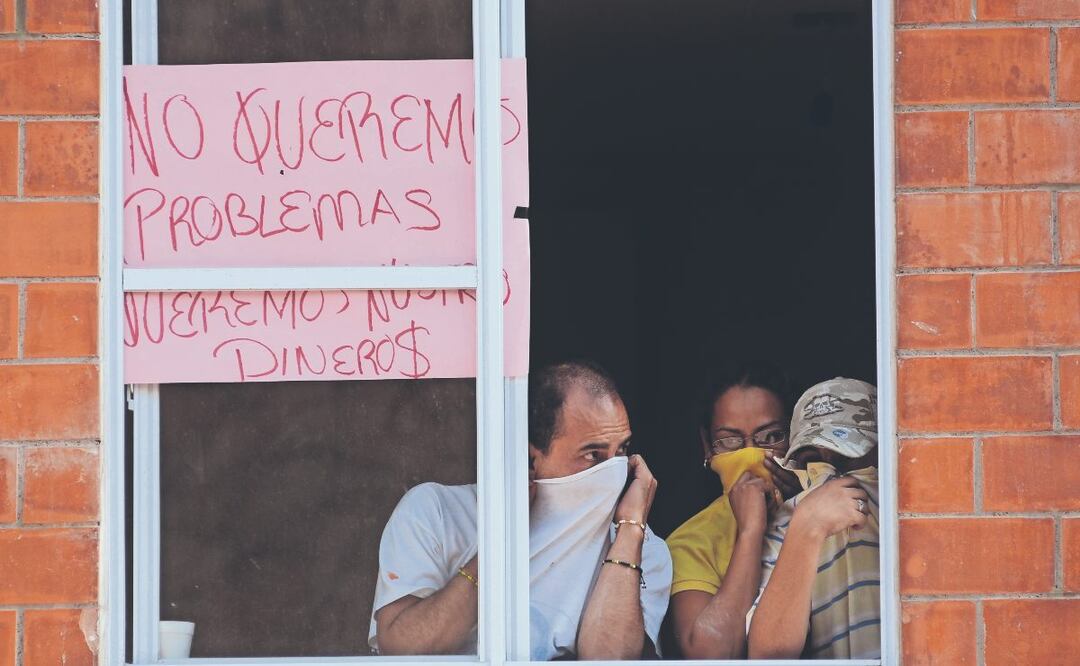 NO QUEREMOS
PROBLEMAS
QUEREMOS NUESTRO
DINERO$